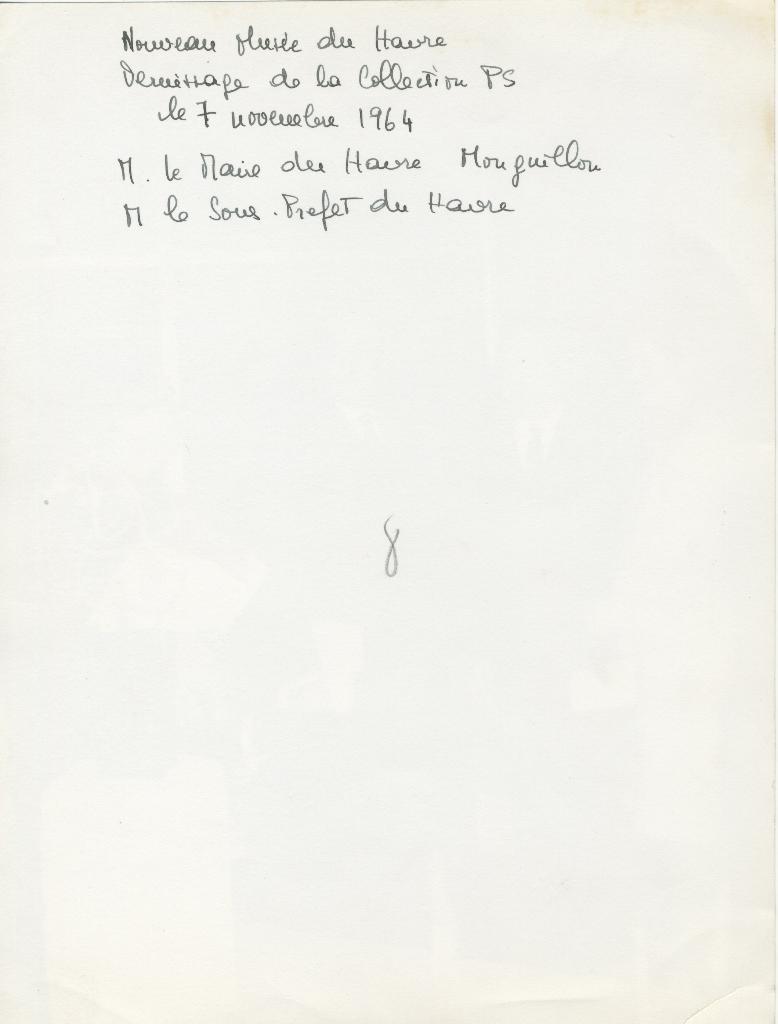 Nouveau Musée du Havre
Vernissage de la Collection PS
le 7 novembre 1964
M. le Maire du Havre Monguillon
M le Sous-Prefet du Havre
8